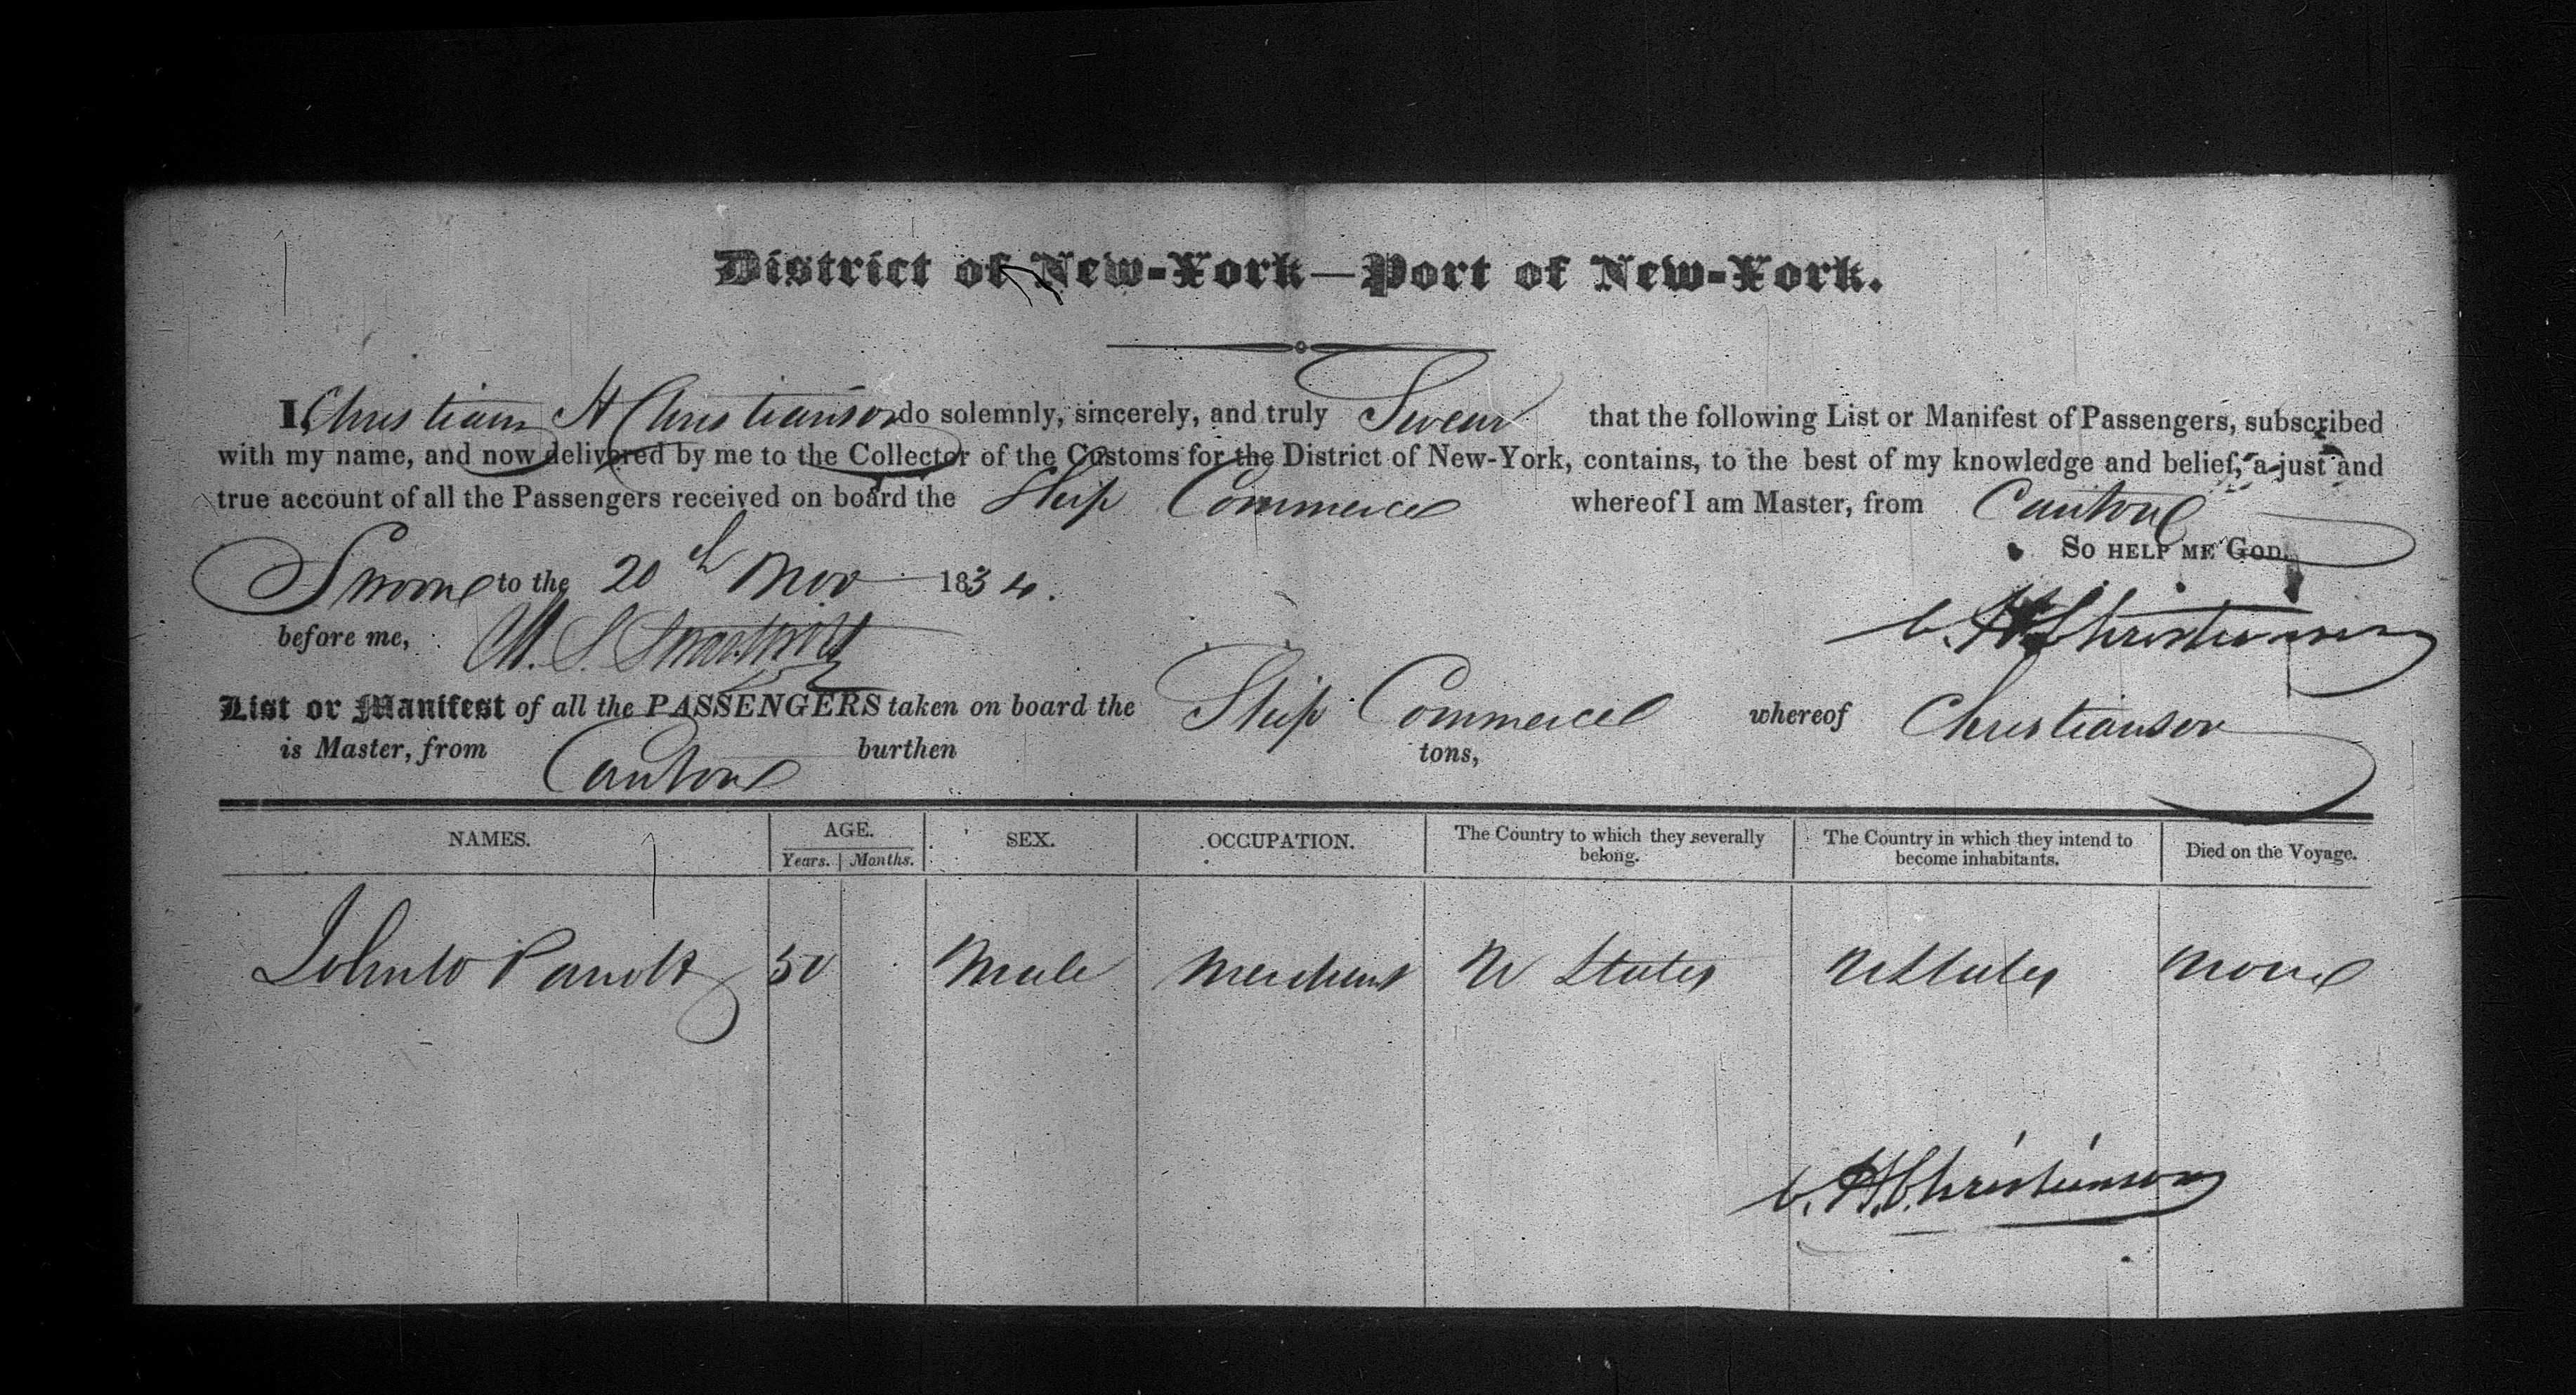 District of New-York—Port of New-York.
I, Christian H Christianson do solemnly, sincerely, and truly Swear that the following List or Manifest of Passengers, subscribed
with my name, and now delivered by me to the Collector of the Customs for the District of New-York, contains, to the best of my knowledge and belief, a just and
true account of all the Passengers received on board the Ship Commerce whereof I am Master, from Canton
So HELP ME GOD.
Sworn to the 20th Nov 1834.
C. H. Christianson
before me,
List or Manifest of all the PASSENGERS taken on board the Ship Commerce whereof Christianson
is Master, from Canton burthen tons,
NAMES. AGE. SEX. OCCUPATION. The Country to which they severally belong. The Country in which they intend to become inhabitants. Died on the Voyage.
Years. Months.
John W 50 Male Merchant U States U States None
C. H. Christianson